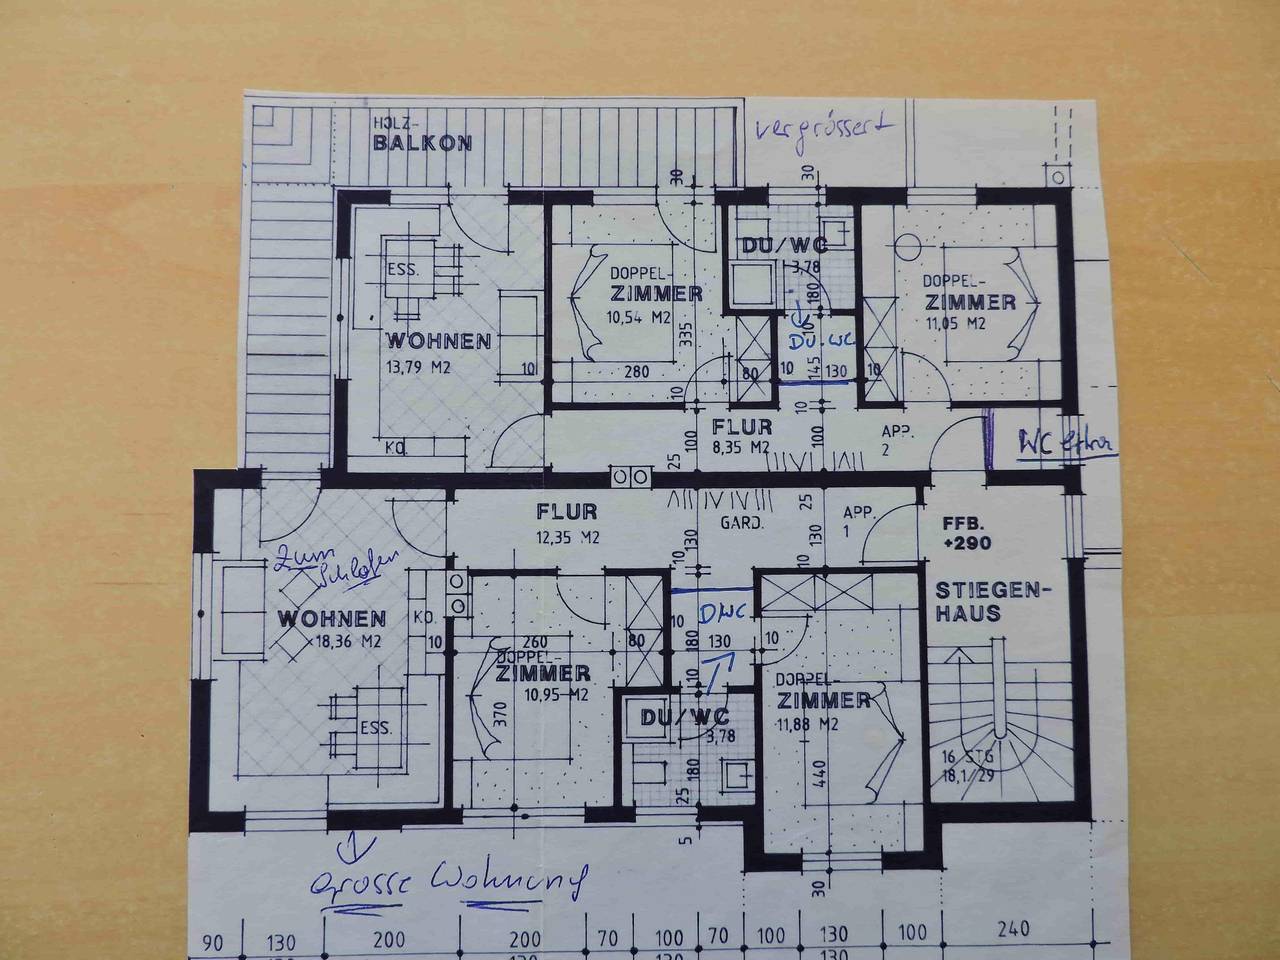 HOLZ-
BALKON
vergrössert
30
30
ESS.
WOHNEN
13,79 M2
KO.
10
DOPPEL-
ZIMMER
10,54 M2
335
280
80
10
DU/WC
3,78
180
10
DU.WC
145
10
130
10
DOPPEL-
ZIMMER
11,05 M2
10
FLUR
8,35 M2
100
25
10
100
APP.
2
WC extra
FLUR
12,35 M2
GARD.
130
10
25
130
APP.
1
FFB.
+290
STIEGEN-
HAUS
16 STG
18,1/29
zum
Schlafen
WOHNEN
18,36 M2
KO.
10
ESS.
260
80
DOPPEL-
ZIMMER
10,95 M2
370
DWC
10
180
130
10
10
DU/WC
3,78
180
25
5
DOPPEL-
ZIMMER
11,88 M2
440
30
Grosse Wohnung
90 130 200 200 70 100 70 100 130 100 240
130 130 130